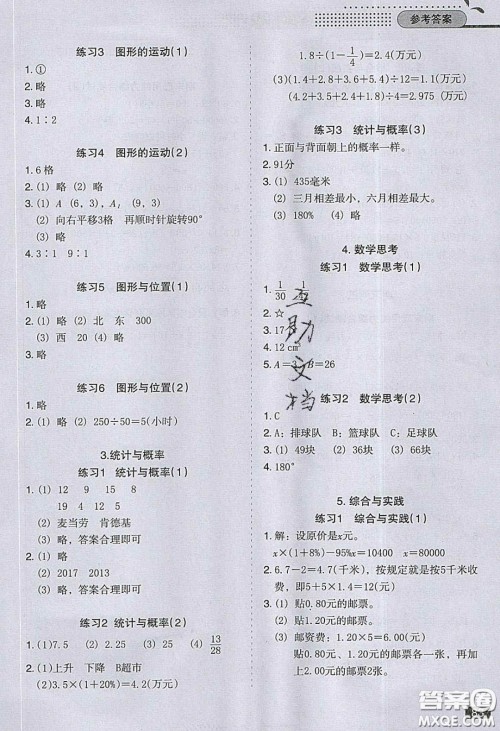 参考答案
练习3 图形的运动(1)
1. ①
2. 略
3. 略
4. 1∶2
练习4 图形的运动(2)
1. 6格
2. (1) 略 (2) 略 (3) 略
3. (1) A(6, 3), A₁ (9, 3)
(2) 向右平移3格 再顺时针旋转90°
(3) 略
4. 3∶1 9∶1
练习5 图形与位置(1)
1. 略
2. (1) 略 (2) 北 东 300
(3) 西 20 (4) 略
练习6 图形与位置(2)
1. 略
2. (1) 略 (2) 250÷50=5(小时)
3.统计与概率
练习1 统计与概率(1)
1. (1) 12 9 15 8
19 4 12 2
(2) 麦当劳 肯德基
(3) 略,答案合理即可
2. (1) 略
(2) 2017 2013
(3) 略,答案合理即可
练习2 统计与概率(2)
1. (1)7.5 (2)2.25 (3)25 (4) 13/28
2. (1)上升 下降 B超市
(2)3.5×(1+20%)=4.2(万元)
1.8÷(1-1/4)=2.4(万元)
(3)(1.4+2.8+3.6+5.4)÷12=1.1(万元)
(4.2+2.9+2.4+1.8)÷4=2.975 (万元)
练习3 统计与概率(3)
1. 正面与背面朝上的概率一样。
2. 91分
3. (1) 435毫米
(2) 三月相差最小,六月相差最大。
(3) 180% (4) 略
4. 数学思考
练习1 数学思考(1)
1. 1/30
2. ☆
3. 17
4. 12 cm
5. A=3 B=26
练习2 数学思考(2)
1. C
2. A:排球队 B:篮球队 C:足球队
3. (1) 49块 (2) 36块 (3) 66块
4. 180°
5. 综合与实践
练习1 综合与实践(1)
1. 解:设原价是x元。
x×(1+8%)-95%x=10400 x=80000
2. 6.7-2=4.7(千米),按规定就是按5千米收
费,即5+5×1.4=12(元)
3. (1) 贴0.80元的邮票。
(2) 贴1.20元的邮票。
(3) 邮资费:4×1.20=4.80(元)
贴0.80元、1.20元的邮票各1张,贴
1.40元的邮票2张。
互助文档
答案圈
MXQE.COM